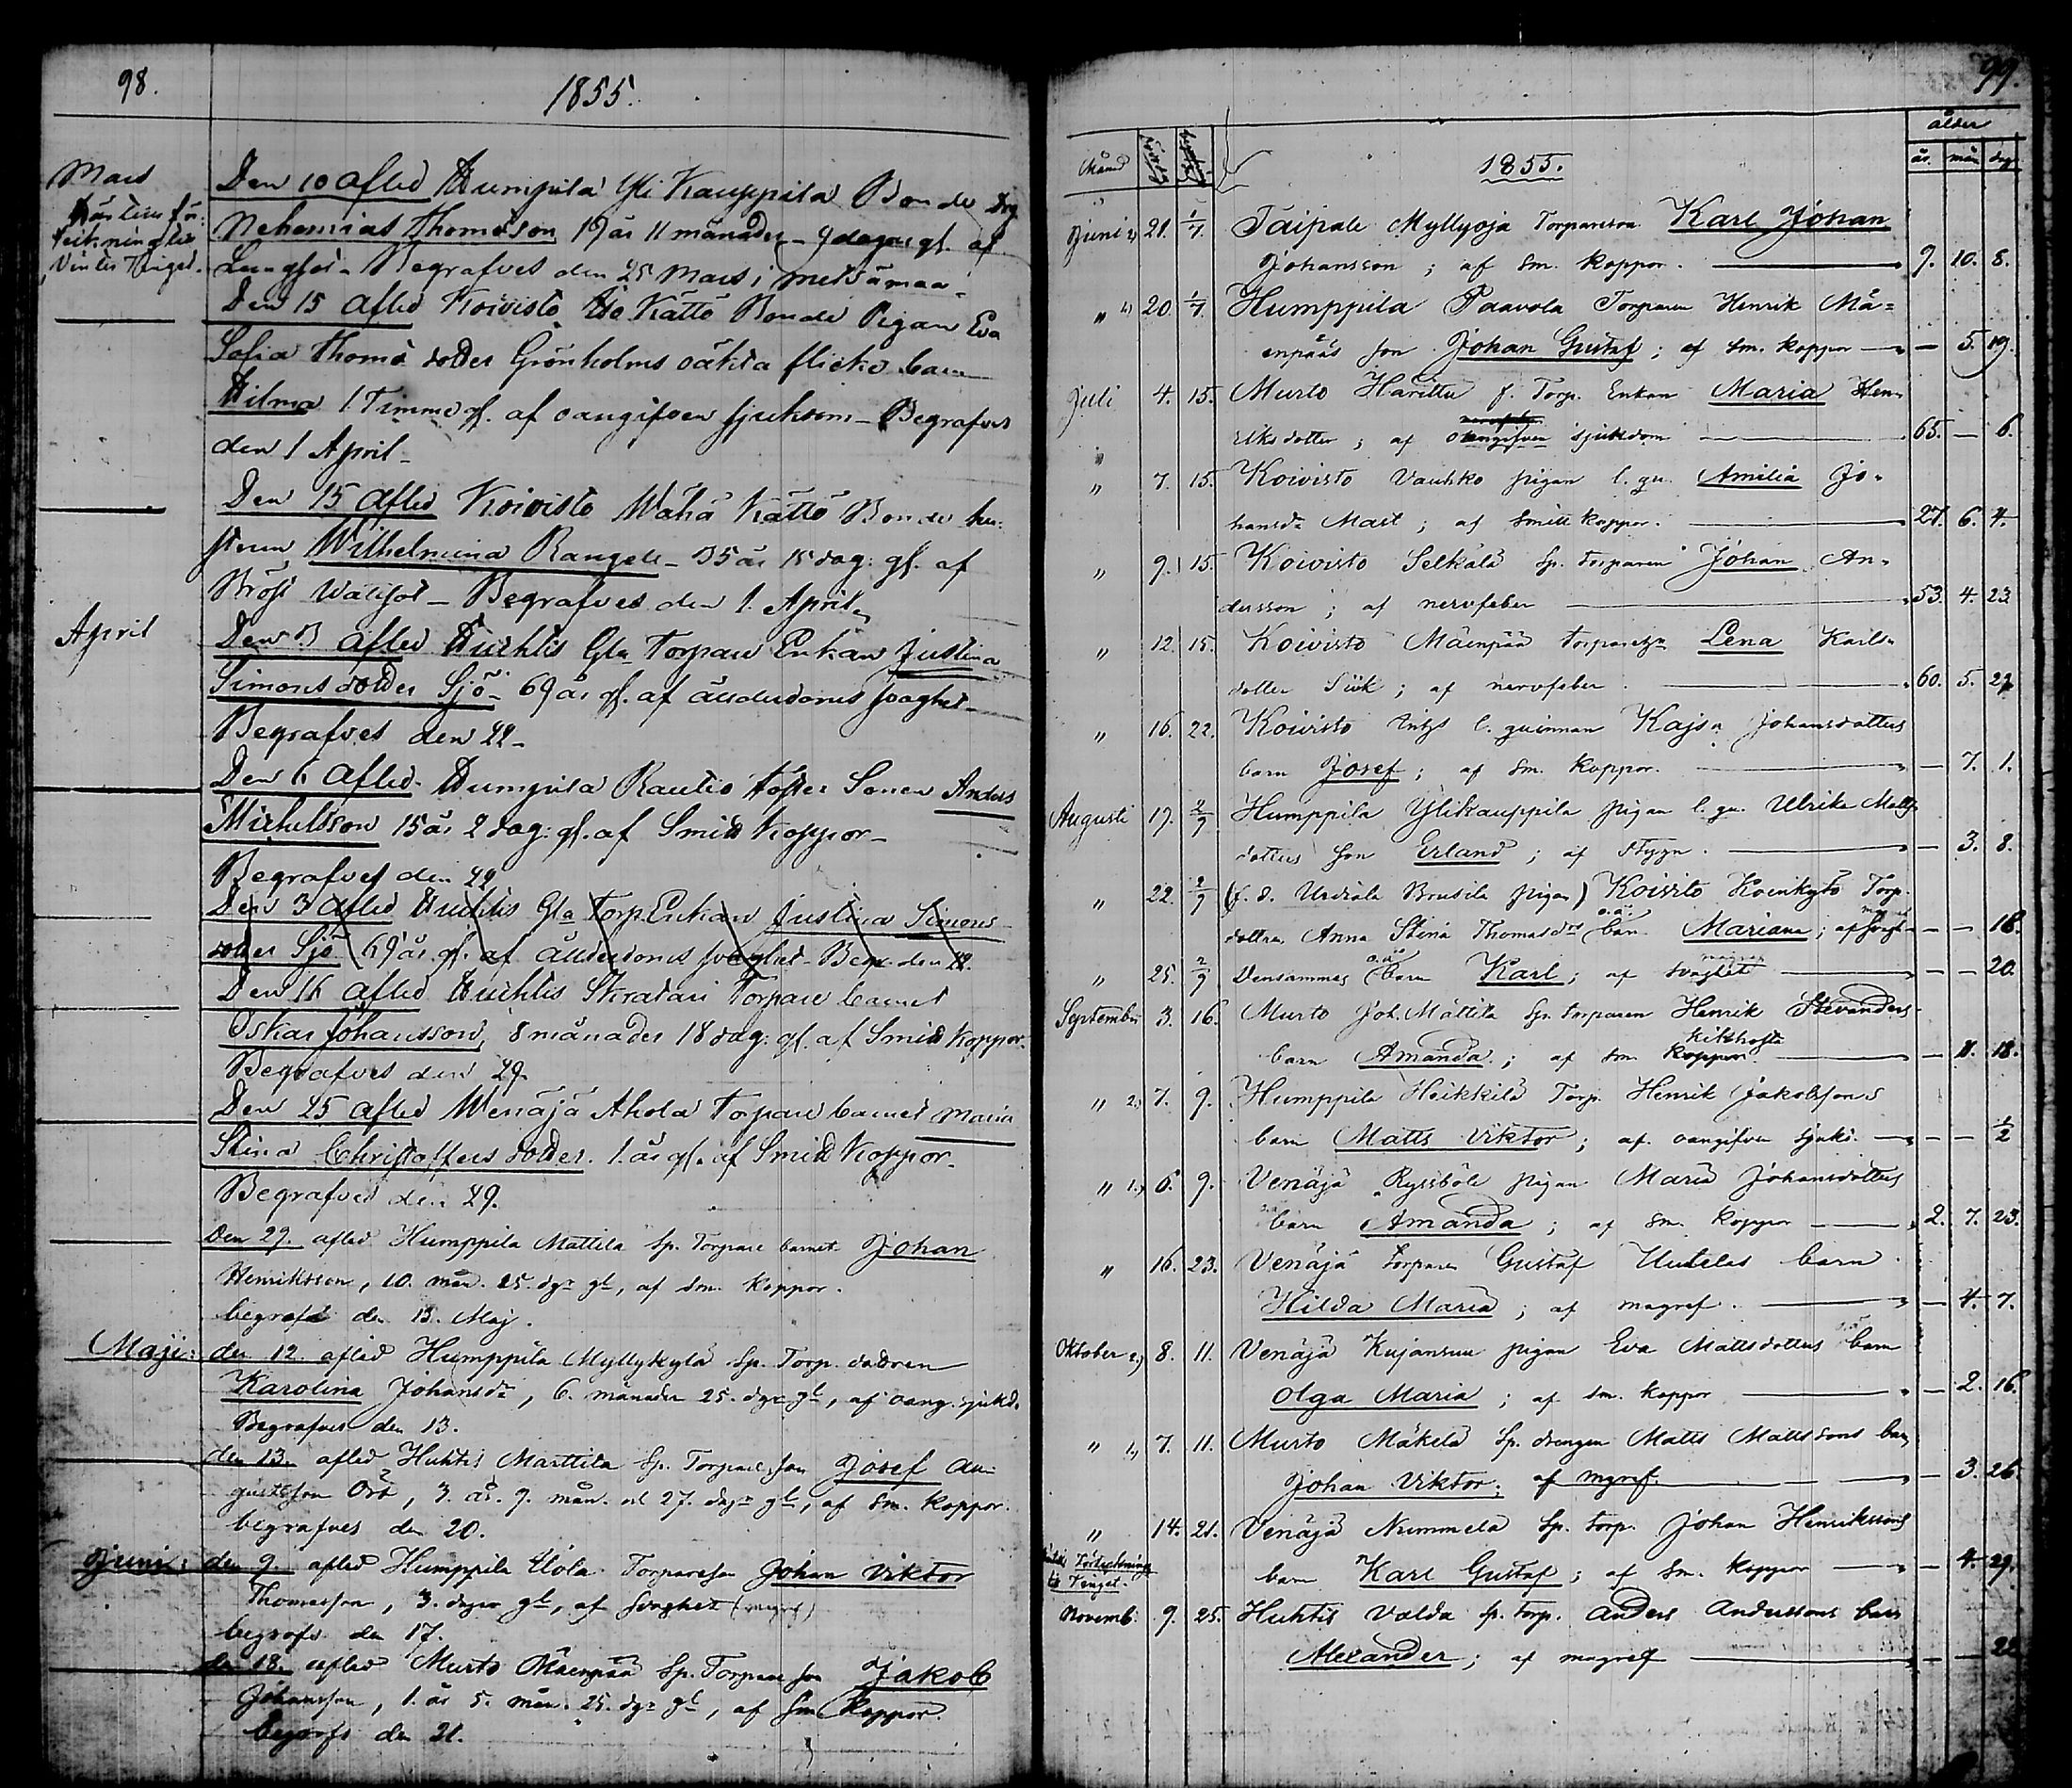 98.
1855.
Mars
Den 10 afled Humpila Yli Kauppila Bonde Drg
Nehemias Thomasson 19 år 11 månader 9 dagar gl. af
Lungsot - Begrafves den 25 Mars i
Den 15 afled Koivisto Iso Kättö Bonde Pigan Eva
Sofia Thomæ dotter Grönholms oäkta flicke barn
Hilma 1 Timme gl. af oangifven sjukdom - Begrafves
den 1 April -
Den 15 afled Koivisto Wähä Kättö Bonde hu-
strun Wilhelmina Rangell - 35 år 15 dag: gl. af
Bröst Wattsot - Begrafves den 1. April
April
Den 3 afled Huhtis Gla Torpare Enkan Justina
Simonsdotter Sjö - 69 år gl. af ålderdoms svaghet -
Begrafves den 22 -
Den 6 afled Humpila Rautio Foster Sonen Anders
Michelsson 15 år 2 dag: gl. af Smitt Koppor -
Begrafves den 22
Den 3 afled Huhtis Gla Torp. Enkan Justina Simons
dotter Sjö 69 år gl. af ålderdoms svaghet - Begr. den 22.
Den 16 afled Huhtis Torpare barnet
Oskar Johansson, 8 månader 18 dag: gl. af Smitt Koppor -
Begrafves den 29.
Den 25 afled Wenäjä Ahola Torpare barnet Maria
Stina Christoffers dotter. 1 år gl. af Smitt Koppor -
Begrafves den 29.
Den 27. afled Humppila Mattila Sp. Torpare barnet Johan
Henriksson, 10. mån. 25. dgr gl, af Sm. Koppor.
begrafd den 13. Maj.
Maji:
den 12. afled Humppila Myllykylä Sp. Torp. dottren
Karolina Johansdr, 6. månader 25. dgr gl, af oang. sjukd.
Begrafves den 13.
den 13. afled Huhtis Marttila Sp. Torpare son Josef Au-
gustsson , 3. år. 9. mån. o 27. dagr gl, af Sm. koppor.
begrafves den 20.
Juni:
den 9. afled Humppila Ulola Torpareson Johan Viktor
Thomasson, 3. dagar gl, af svaghet (magref)
begrofs den 17.
den 18. afled Murto Mäenpää Sp. Torpare son Jakob
Johansson, 1. år 5. mån. 25. dgr gl, af Sm. Koppor.
begrofs den 21.
99.
ålder
Månad
1855.
år. mån dag
Juni 2) 21. 1/7. Taipale Myllyoja Torpareson Karl Johan
Johansson; af Sm. koppor. 9. 10. 8.
" 1) 20. 1/7. Humppila Paavola Torparen Henrik Mä-
enpääs son Johan Gustaf; af Sm. koppor — 5. 19.
Juli 4. 15. Murto Harittu f. Torp. Enkan Maria Hen-
riksdotter; af oangifven sjukdom 65. — 6.
" 7. 15. Koivisto Vauhko pigan l. qu. Amilia Jo-
hansdr Mast; af Smitt koppor. 27. 6. 4.
" 9. 15. Koivisto Selkälä Sp. torparen Johan An-
dersson; af nervfeber 53. 4. 23.
" 12. 15. Koivisto Mäenpää torpare Lena Karls-
dotter Siik; af nervfeber 60. 5. 27.
" 16. 22. Koivisto l. quinnan Kajsa Johansdotters
barn Josef; af Sm. koppor. — 7. 1.
Augusti 17. 2/9 Humppila Ylikauppila pigan l. qu. Ulrika Matts-
dotters son Erland; af — 3. 8.
" 22. 2/9 (f. d. Urdiala Brusila pigan) Koivisto Koenkytö Torp.
dottren Anna Stina Thomasdrs o.ä. barn Mariana; af — — 18.
" 25. 2/9 Densammas o.ä. barn Karl; af svaghet magref — — 20.
September 3. 16. Murto Joh. Mattila Sp. torparen Henrik Stevanders
barn Amanda; af sm. koppor kikhosta — 11. 18.
" 2.) 7. 9. Humppila Heikkilä Torp. Henrik Jakobssons
barn Matts Viktor; af oangifven sjukd. — — 1/2
" 1.) 6. 9. Venäjä Ryssböle pigan Maria Johansdotters
barn Amanda; af Sm. koppor 2. 7. 23.
" 16. 23. Venäjä torparen Gustaf Uutelas barn
Hilda Maria; af magref. — 4. 7.
Oktober 2.) 8. 11. Venäjä Kujansuu pigan Eva Mattsdotters barn
Olga Maria; af sm. koppor — 2. 16.
" 1.) 7. 11. Murto Mäkelä Sp. drengen Matts Mattssons barn
Johan Viktor; af magref. — 3. 26.
" 14. 21. Venäjä Nummela Sp. torp. Johan Henrikssons
barn Karl Gustaf; af Sm. koppor — 4. 29.
Tinget.
Novemb: 9. 25. Huhtis Valda Sp. torp. Anders Anderssons barn
Alexander; af magref — — 22